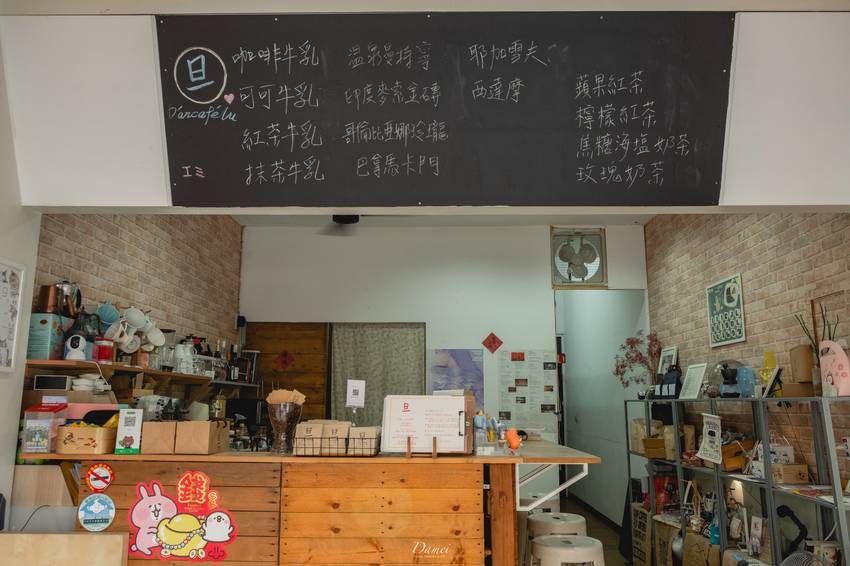 旦
D'arcafé lu
エミ
咖啡牛乳
可可牛乳
紅茶牛乳
抹茶牛乳
溫泉曼特寧
印度麥索金磚
哥倫比亞娜玲瓏
巴拿馬卡門
耶加雪夫
西達摩
蘋果紅茶
檸檬紅茶
焦糖海塩奶茶
玫瑰奶茶
旦
錢
Damei